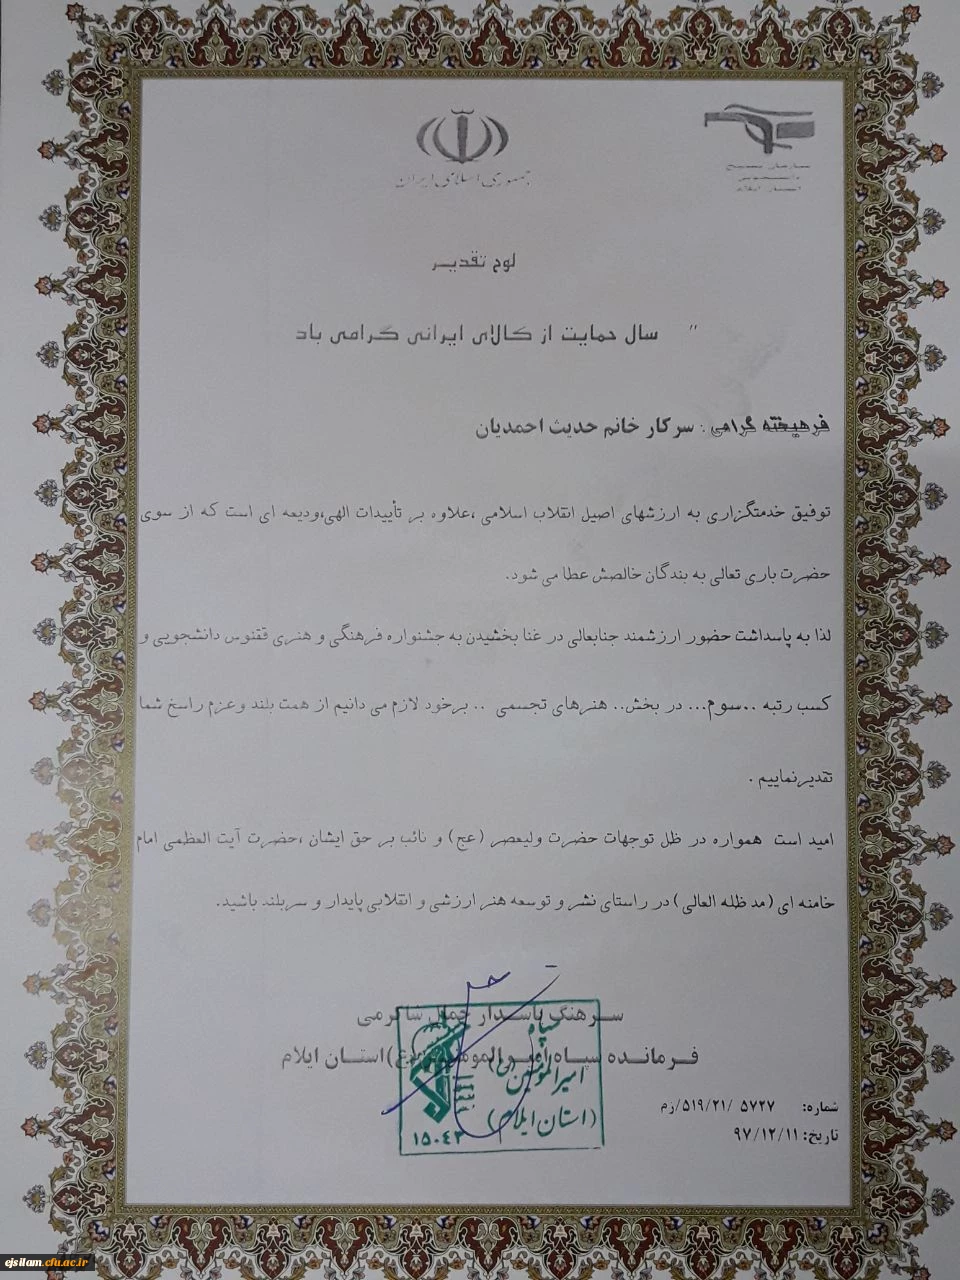 جمهوری اسلامی ایران
سازمان بسیج
دانشجویی
استان ایلام
لوح تقدیر
" سال حمایت از کالای ایرانی گرامی باد
فرهیخته گرامی : سرکار خانم حدیث احمدیان
توفیق خدمتگزاری به ارزشهای اصیل انقلاب اسلامی ،علاوه بر تأییدات الهی،ودیعه ای است که از سوی
حضرت باری تعالی به بندگان خالصش عطا می شود.
لذا به پاسداشت حضور ارزشمند جنابعالی در غنا بخشیدن به جشنواره فرهنگی و هنری ققنوس دانشجویی و
کسب رتبه ..سوم... در بخش.. هنرهای تجسمی .. برخود لازم می دانیم از همت بلند وعزم راسخ شما
تقدیرنماییم .
امید است همواره در ظل توجهات حضرت ولیعصر (عج) و نائب بر حق ایشان ،حضرت آیت العظمی امام
خامنه ای (مد ظله العالی) در راستای نشر و توسعه هنر ارزشی و انقلابی پایدار و سربلند باشید.
سرهنگ پاسدار جمال شاکرمی
فرمانده سپاه امیرالمومنین(ع) استان ایلام
سپاه
امیرالمؤمنین (ع)
(استان ایلام)
۱۵۰۴۳
شماره: ۵۷۲۷ /۵۱۹/۲۱/زم
تاریخ: ۹۷/۱۲/۱۱
ejsilam.cfu.ac.ir